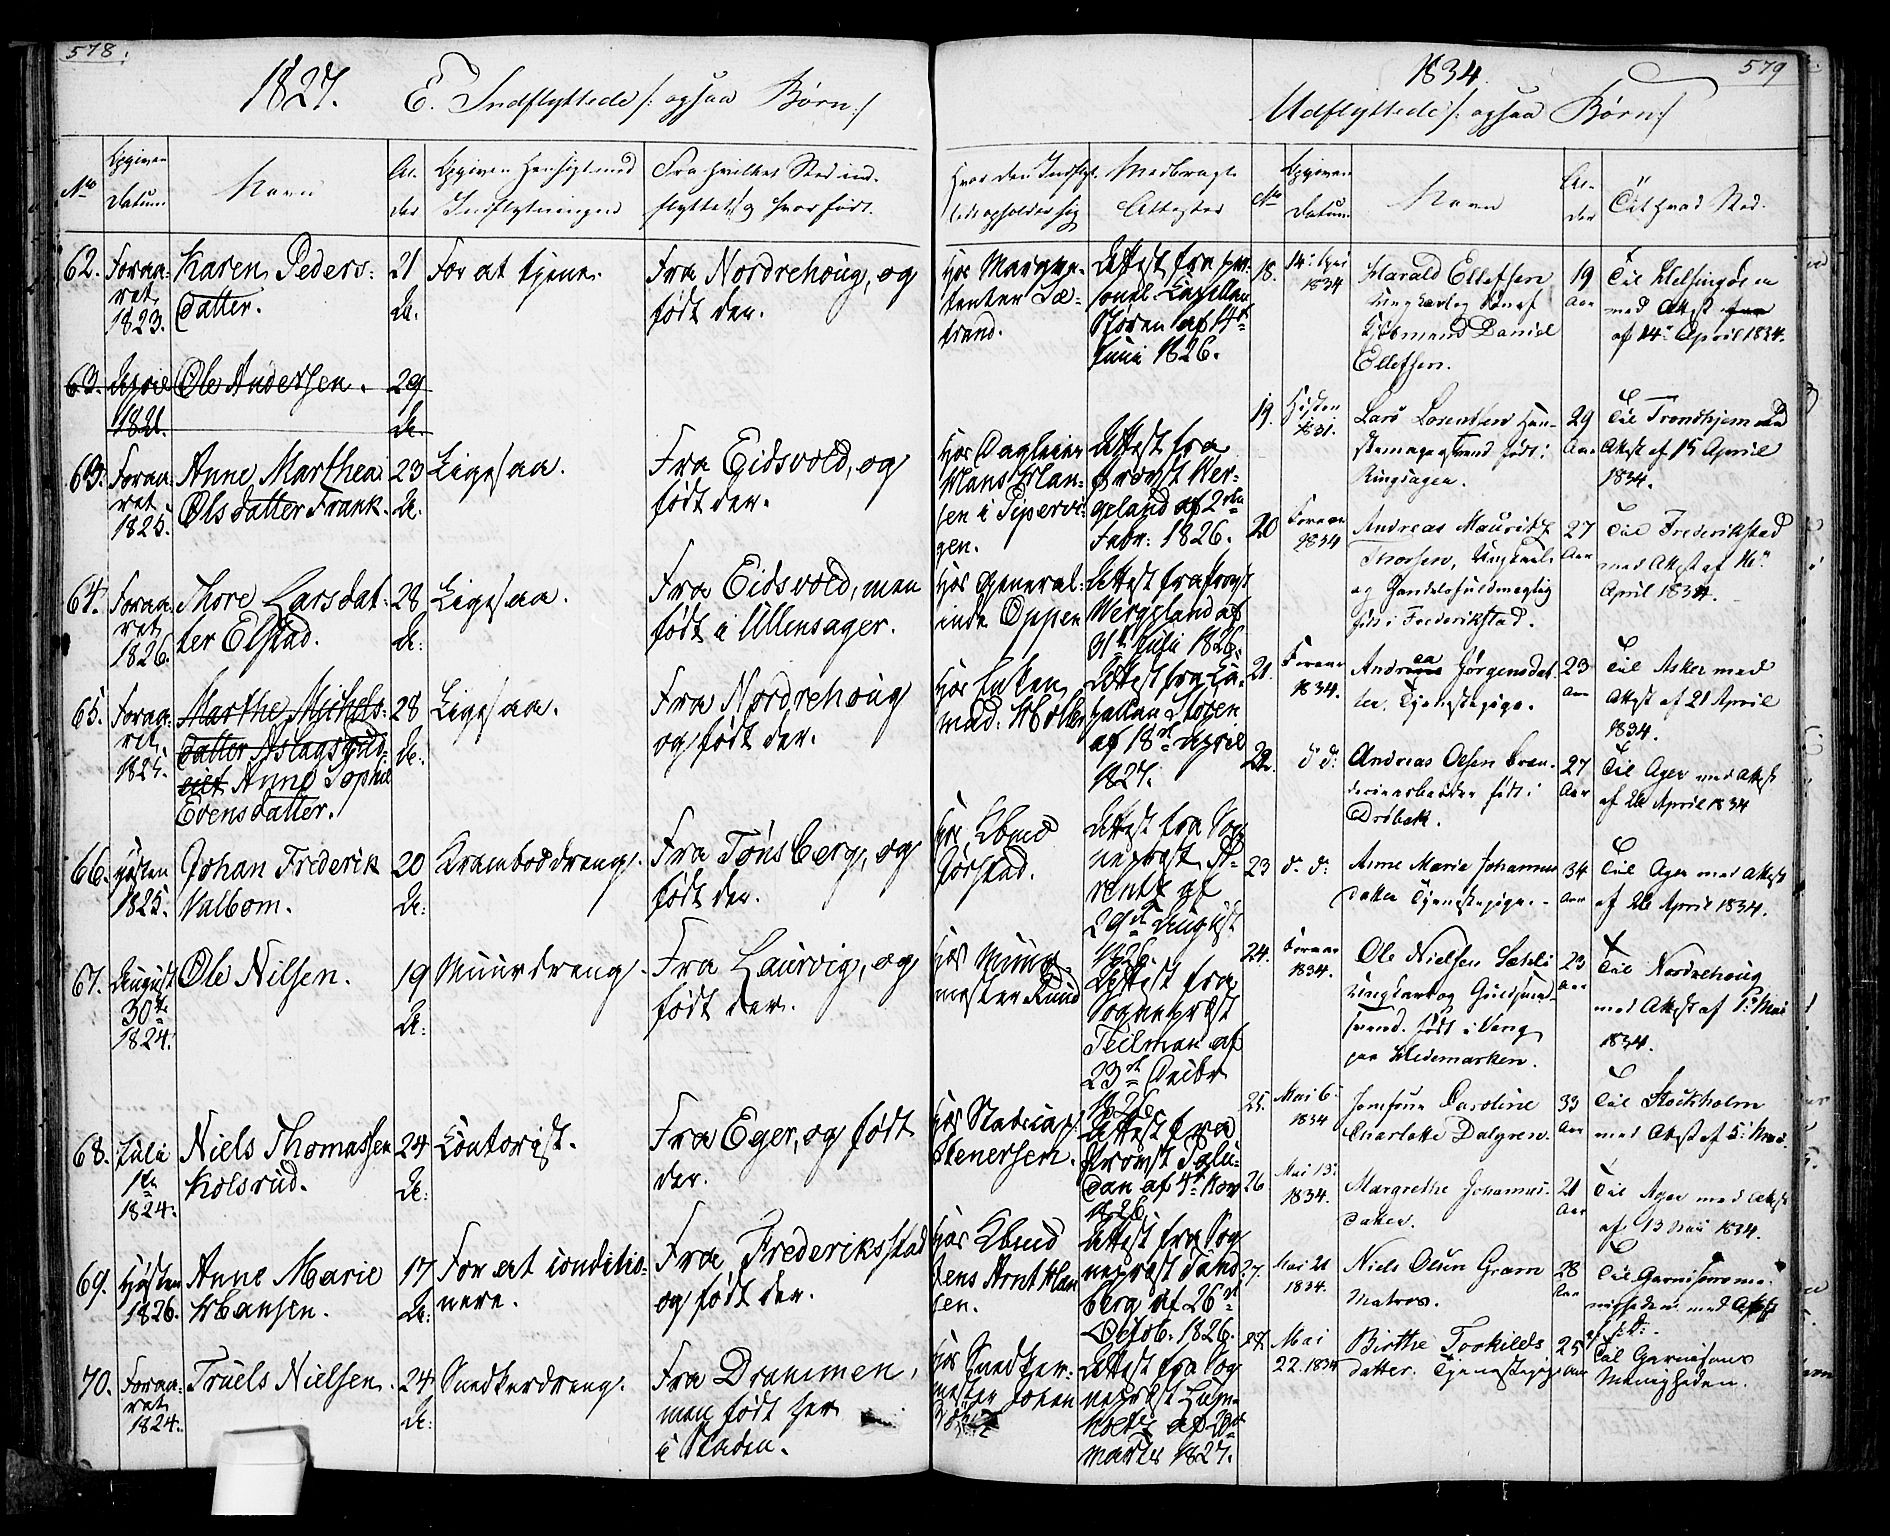 578.
1827. E. Indflyttede /: ogsaa Børn :/
No
Opgiven Datum
Navn
Al-der
Opgiven Hensigt med Indflytningen
Fra hvilket Sted ind-flyttet, og hvor født.
Hvor den Indflyt-tede opholder sig
Medbragte Attester
62. Foraa-ret 1823. Karen Peders-datter. 21 A. For at tjene. Fra Nordrehoug, og født der. Hos Marque-tenter Læ-trand. Attest fra per-sonel Capellan Støren af 14de Juni 1826.
63. April 1821. Ole Andersen. 29 A.
63. Foraa-ret 1825. Anne Marthea Olsdatter Frank. 23 A. Ligesaa. Fra Eidsvold, og født der. Hos Dagleier Hans Han-sen i Pipervi-gen. Attest fra Provst Wer-geland af 2den Febr: 1826.
64. Foraa-ret 1826. Thore Larsdat-ter Elstad. 28 A: Ligesaa. Fra Eidsvold, men født i Ullensager. Hos General-inde Oppen Attest fra Provst Wergeland af 31te Juli 1826.
65. Foraa-ret 1825. Marthe Michels-datter Aslagsgud-eiet Anne Sophie Evensdatter. 28 A: Ligesaa. Fra Nordrehoug og født der. Hos Enken Mad: Møller Attest fra Ca-pellan Støren af 18de April 1827.
66. Høsten 1825. Johan Frederik Valbom. 20 A: Kramboddreng. Fra Tønsberg, og født der. Hos Kbmd Gørstad. Attest fra Sog-neprest A-rentz af 29de August 1826
67. August 30te 1824. Ole Nilsen. 19 A: Muurdreng. Fra Laurvig, og født der. Hos Muur-mester Ruud Attest fra Sogneprest Teilman af 23de Octbr 1826
68. Juli 1te 1824. Niels Thomassen Kolsrud. 24 A: Contorist. Fra Eger, og født der. Hos Stadscap: Stenersen. Attest fra Provst Palu-dan af 4de Nov 1826
69. Høsten 1826. Anne Marie Hansen. 17 A: For at conditio-nere. Fra Frederiksstad og født der. Hos Kbmd Jens Arnt Han-sen. Attest fra Sog-neprest Tand-berg af 26de Octob. 1826.
70. Foraa-ret 1824. Truels Nielsen. 24 A: Snedkerdreng. Fra Drammen, men født her i Staden. Hos Snedker-mester Johan Attest fra Sog-neprest af Marts 1827.
579
1834.
Udflyttede /: ogsaa Børn :/
No
Opgiven Datum
Navn
Al-der
Til hvad Sted.
18. 14: April 1834 Harald Ellefsen Ungkarl og Søn af Kjøbmand Daniel Ellefsen. 19 Aar Til Helsingøer med Attest fra af 14: April 1834.
19. Høsten 1831. Lars Lorentsen Han-skemagersvend født i Ringsager. 29 Aar Til Trondhjem med Attest af 15 April 1834.
20 Foraar 1834 Andreas Mauritz Thorsen, Ungkarl og Handelsfuldmægtig født i Frederikstad. 27 Aar Til Frederikstad med Attest af 16: April 1834.
21. Foraar 1834. Andrea Jørgensdat-ter. Tjenestepige. 23 Aar Til Asker med Attest af 21 April 1834.
22. d d: Andreas Olsen født i Drøbak. 27 Aar Til Ager med Attest af 26 April 1834
23 d: d: Anne Maria Johannes-datter Tjenestepige. 34 Aar Til Ager med Attest af 26 April 1834.
24. Foraar 1834. Ole Nielsen Ungkarl og Guldsmed-svend. født i Vang paa Hedemarken. 23 Aar Til Nordrehoug med Attest af 1: Mai 1834.
25. Mai 6. 1834 Jomfrue Caroline Charlotte Dalgren. 33 Aar Til Stockholm med Attest af 5: Mai.
26 Mai 13: 1834. Margrethe Johannes-datter. 21 Aar Til Ager med Attest af 13 Mai 1834.
27. Mai 21 1834. Niels Olsen Gram Matros. 28 Aar Til Garnisonsme-nigheden med Attest f: D:.
28. Mai 22. 1834 Birthe Torkilds datter. Tjenestepige 25 Aar Til Garnisons Menigheden.